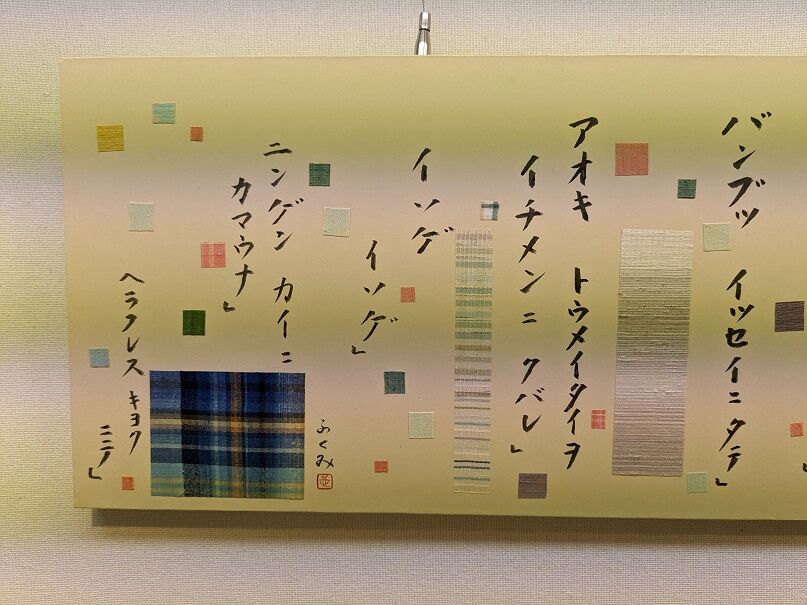 バンブツ イツセイニ タテ」
アオキ トウメイタイヲ
イチメンニ クバレ」
イソゲ
イソゲ」
ニンゲン カイニ
カマウナ」
ヘラクレス キヨク
ふくみ